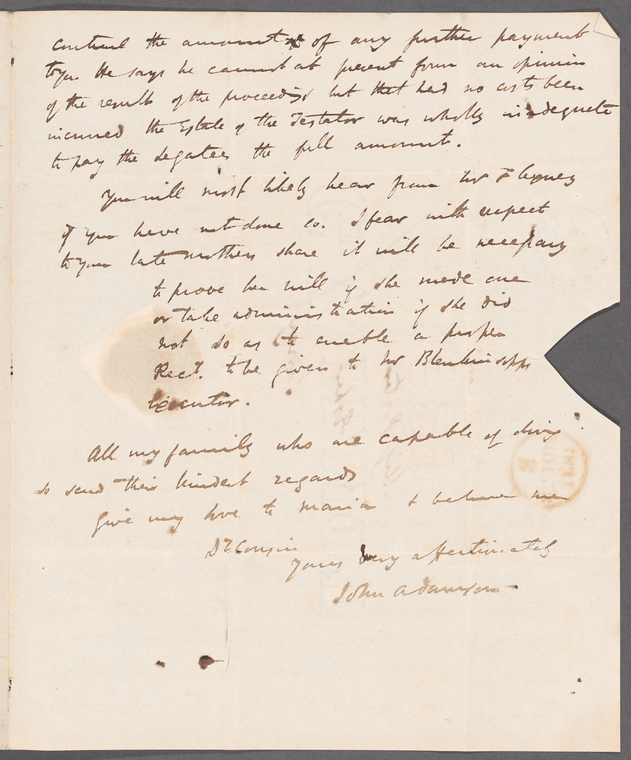 control the amount of any further payment
to you He says he cannot at present form an opinion
of the result of the proceedings but that had no costs been
incurred the Estate of the Testator was wholly inadequate
to pay the Legatees the full amount.
You will most likely hear from Mr
if you have not done so. I fear with respect
to your late mothers share it will be necessary
to prove her will if she made one
or take administration if she did
not do so as to enable a proper
Rect. to be given to Mr Blenkinsopps
Executor.
All my family who are capable of doing
so send their kindest regards
Give my love to Maria & believe me
Dr Cousin
Yours very affectionately
John Adamson